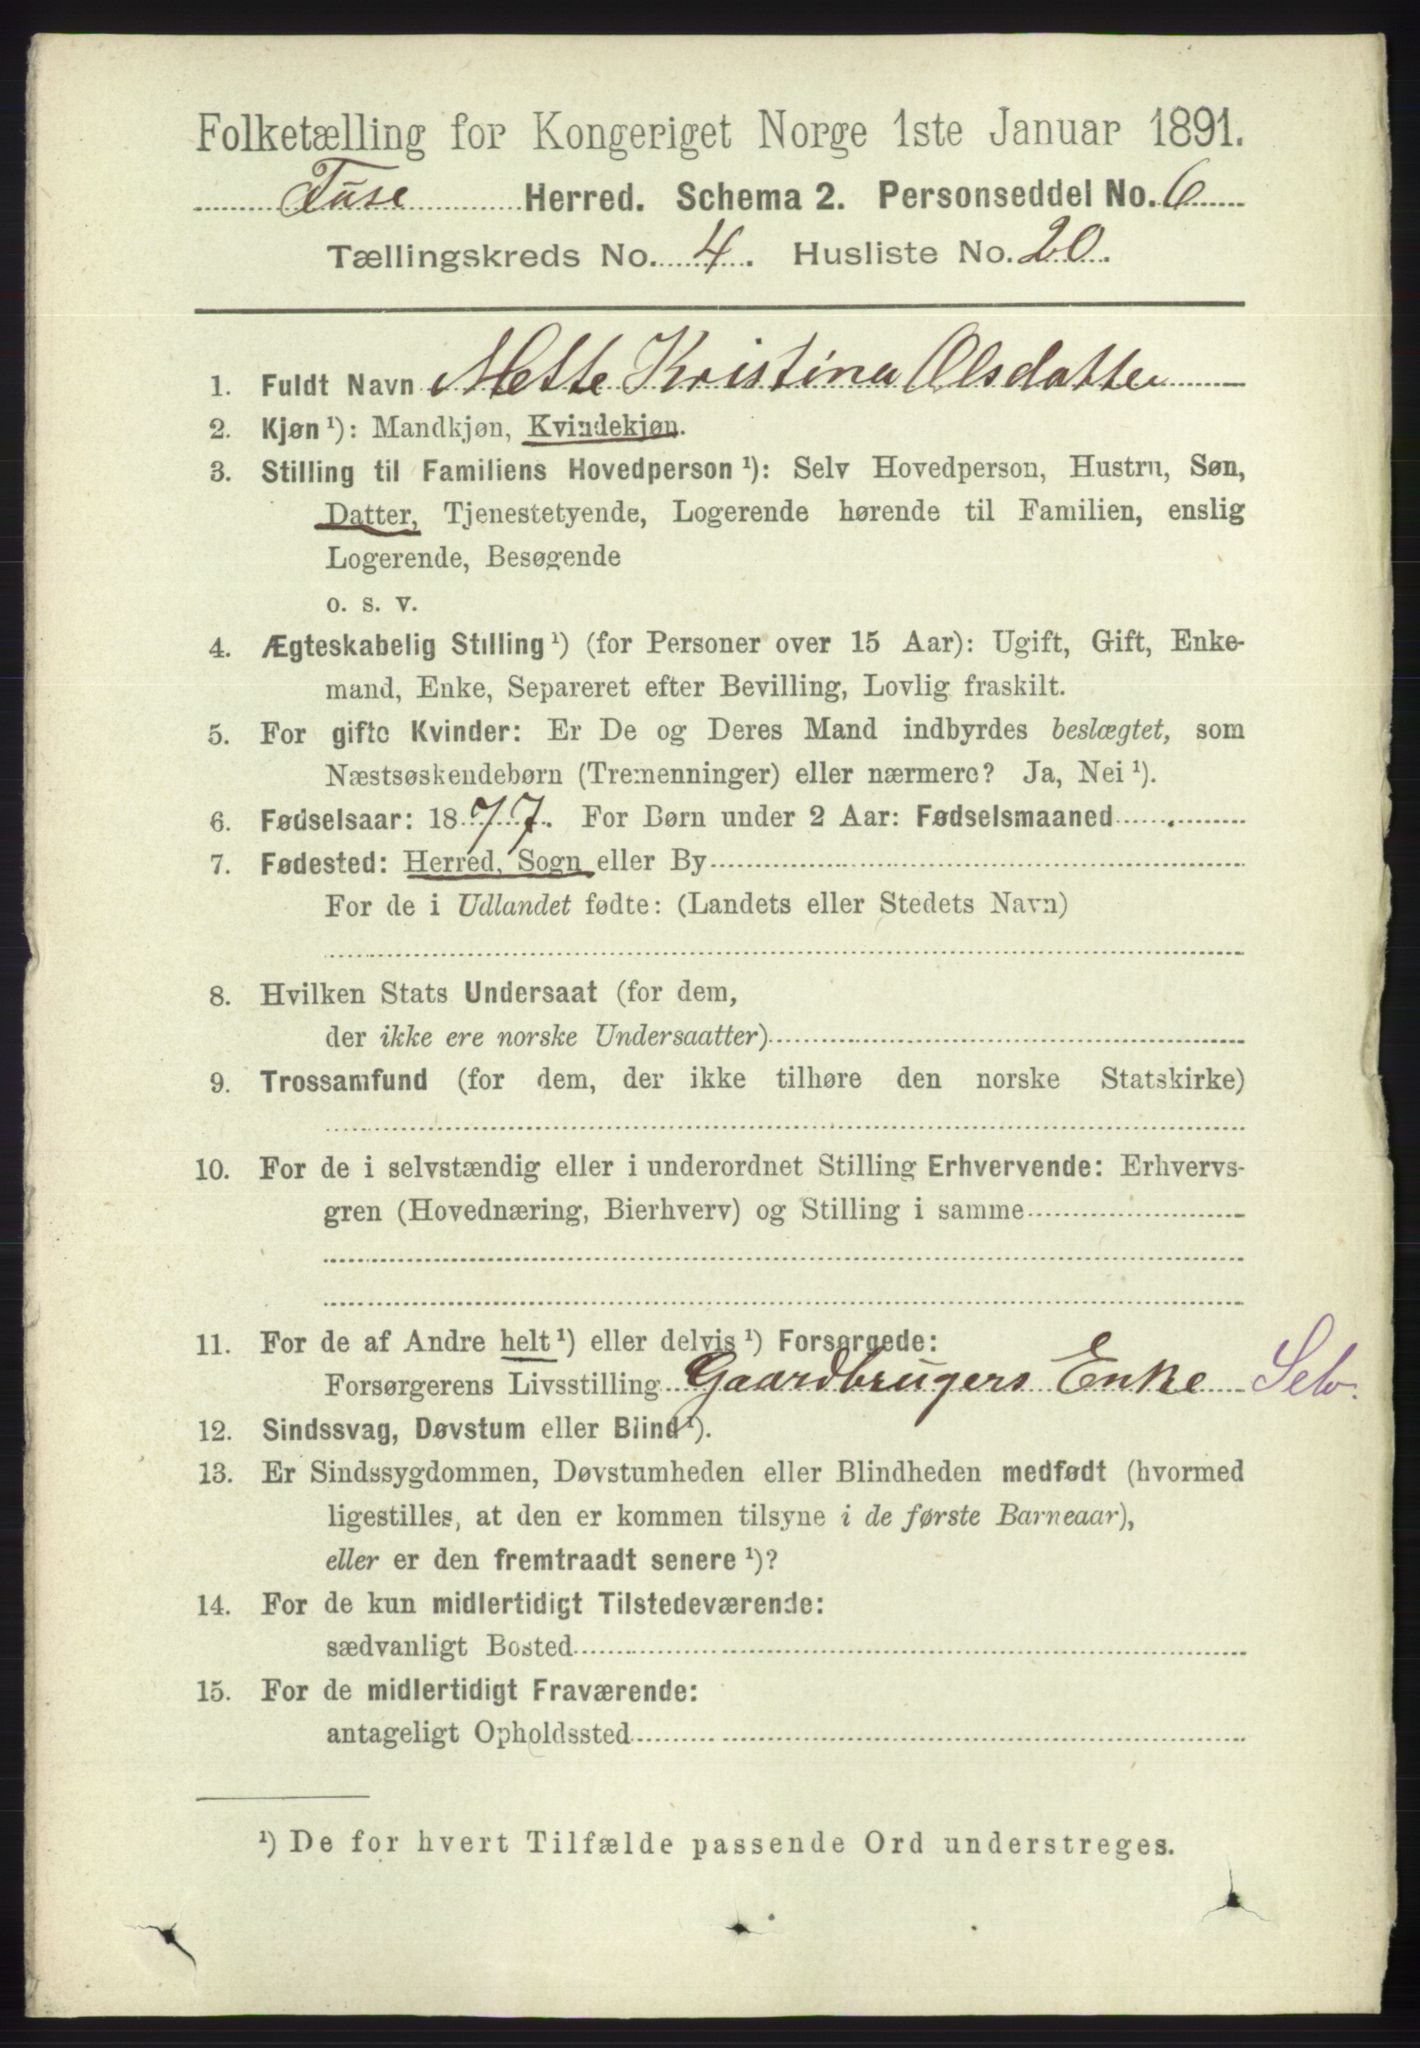 Folketælling for Kongeriget Norge 1ste Januar 1891.
Fuse Herred. Schema 2. Personseddel No. 6
Tællingskreds No. 4. Husliste No. 20.
1. Fuldt Navn Mette Kristina Olsdatter
2. Kjøn ¹): Mandkjøn, Kvindekjøn.
3. Stilling til Familiens Hovedperson ¹): Selv Hovedperson, Hustru, Søn,
Datter, Tjenestetyende, Logerende hørende til Familien, enslig
Logerende, Besøgende
o. s. v.
4. Ægteskabelig Stilling ¹) (for Personer over 15 Aar): Ugift, Gift, Enke-
mand, Enke, Separeret efter Bevilling, Lovlig fraskilt.
5. For gifte Kvinder: Er De og Deres Mand indbyrdes beslægtet, som
Næstsøskendebørn (Tremenninger) eller nærmere? Ja, Nei ¹).
6. Fødselsaar: 1877. For Børn under 2 Aar: Fødselsmaaned
7. Fødested: Herred, Sogn eller By
For de i Udlandet fødte: (Landets eller Stedets Navn)
8. Hvilken Stats Undersaat (for dem,
der ikke ere norske Undersaatter)
9. Trossamfund (for dem, der ikke tilhøre den norske Statskirke)
10. For de i selvstændig eller i underordnet Stilling Erhvervende: Erhvervs-
gren (Hovednæring, Bierhverv) og Stilling i samme
11. For de af Andre helt ¹) eller delvis ¹) Forsørgede:
Forsørgerens Livsstilling Gaardbrugers Enke Selv.
12. Sindssvag, Døvstum eller Blind ¹).
13. Er Sindssygdommen, Døvstumheden eller Blindheden medfødt (hvormed
ligestilles, at den er kommen tilsyne i de første Barneaar),
eller er den fremtraadt senere ¹)?
14. For de kun midlertidigt Tilstedeværende:
sædvanligt Bosted
15. For de midlertidigt Fraværende:
antageligt Opholdssted
¹) De for hvert Tilfælde passende Ord understreges.